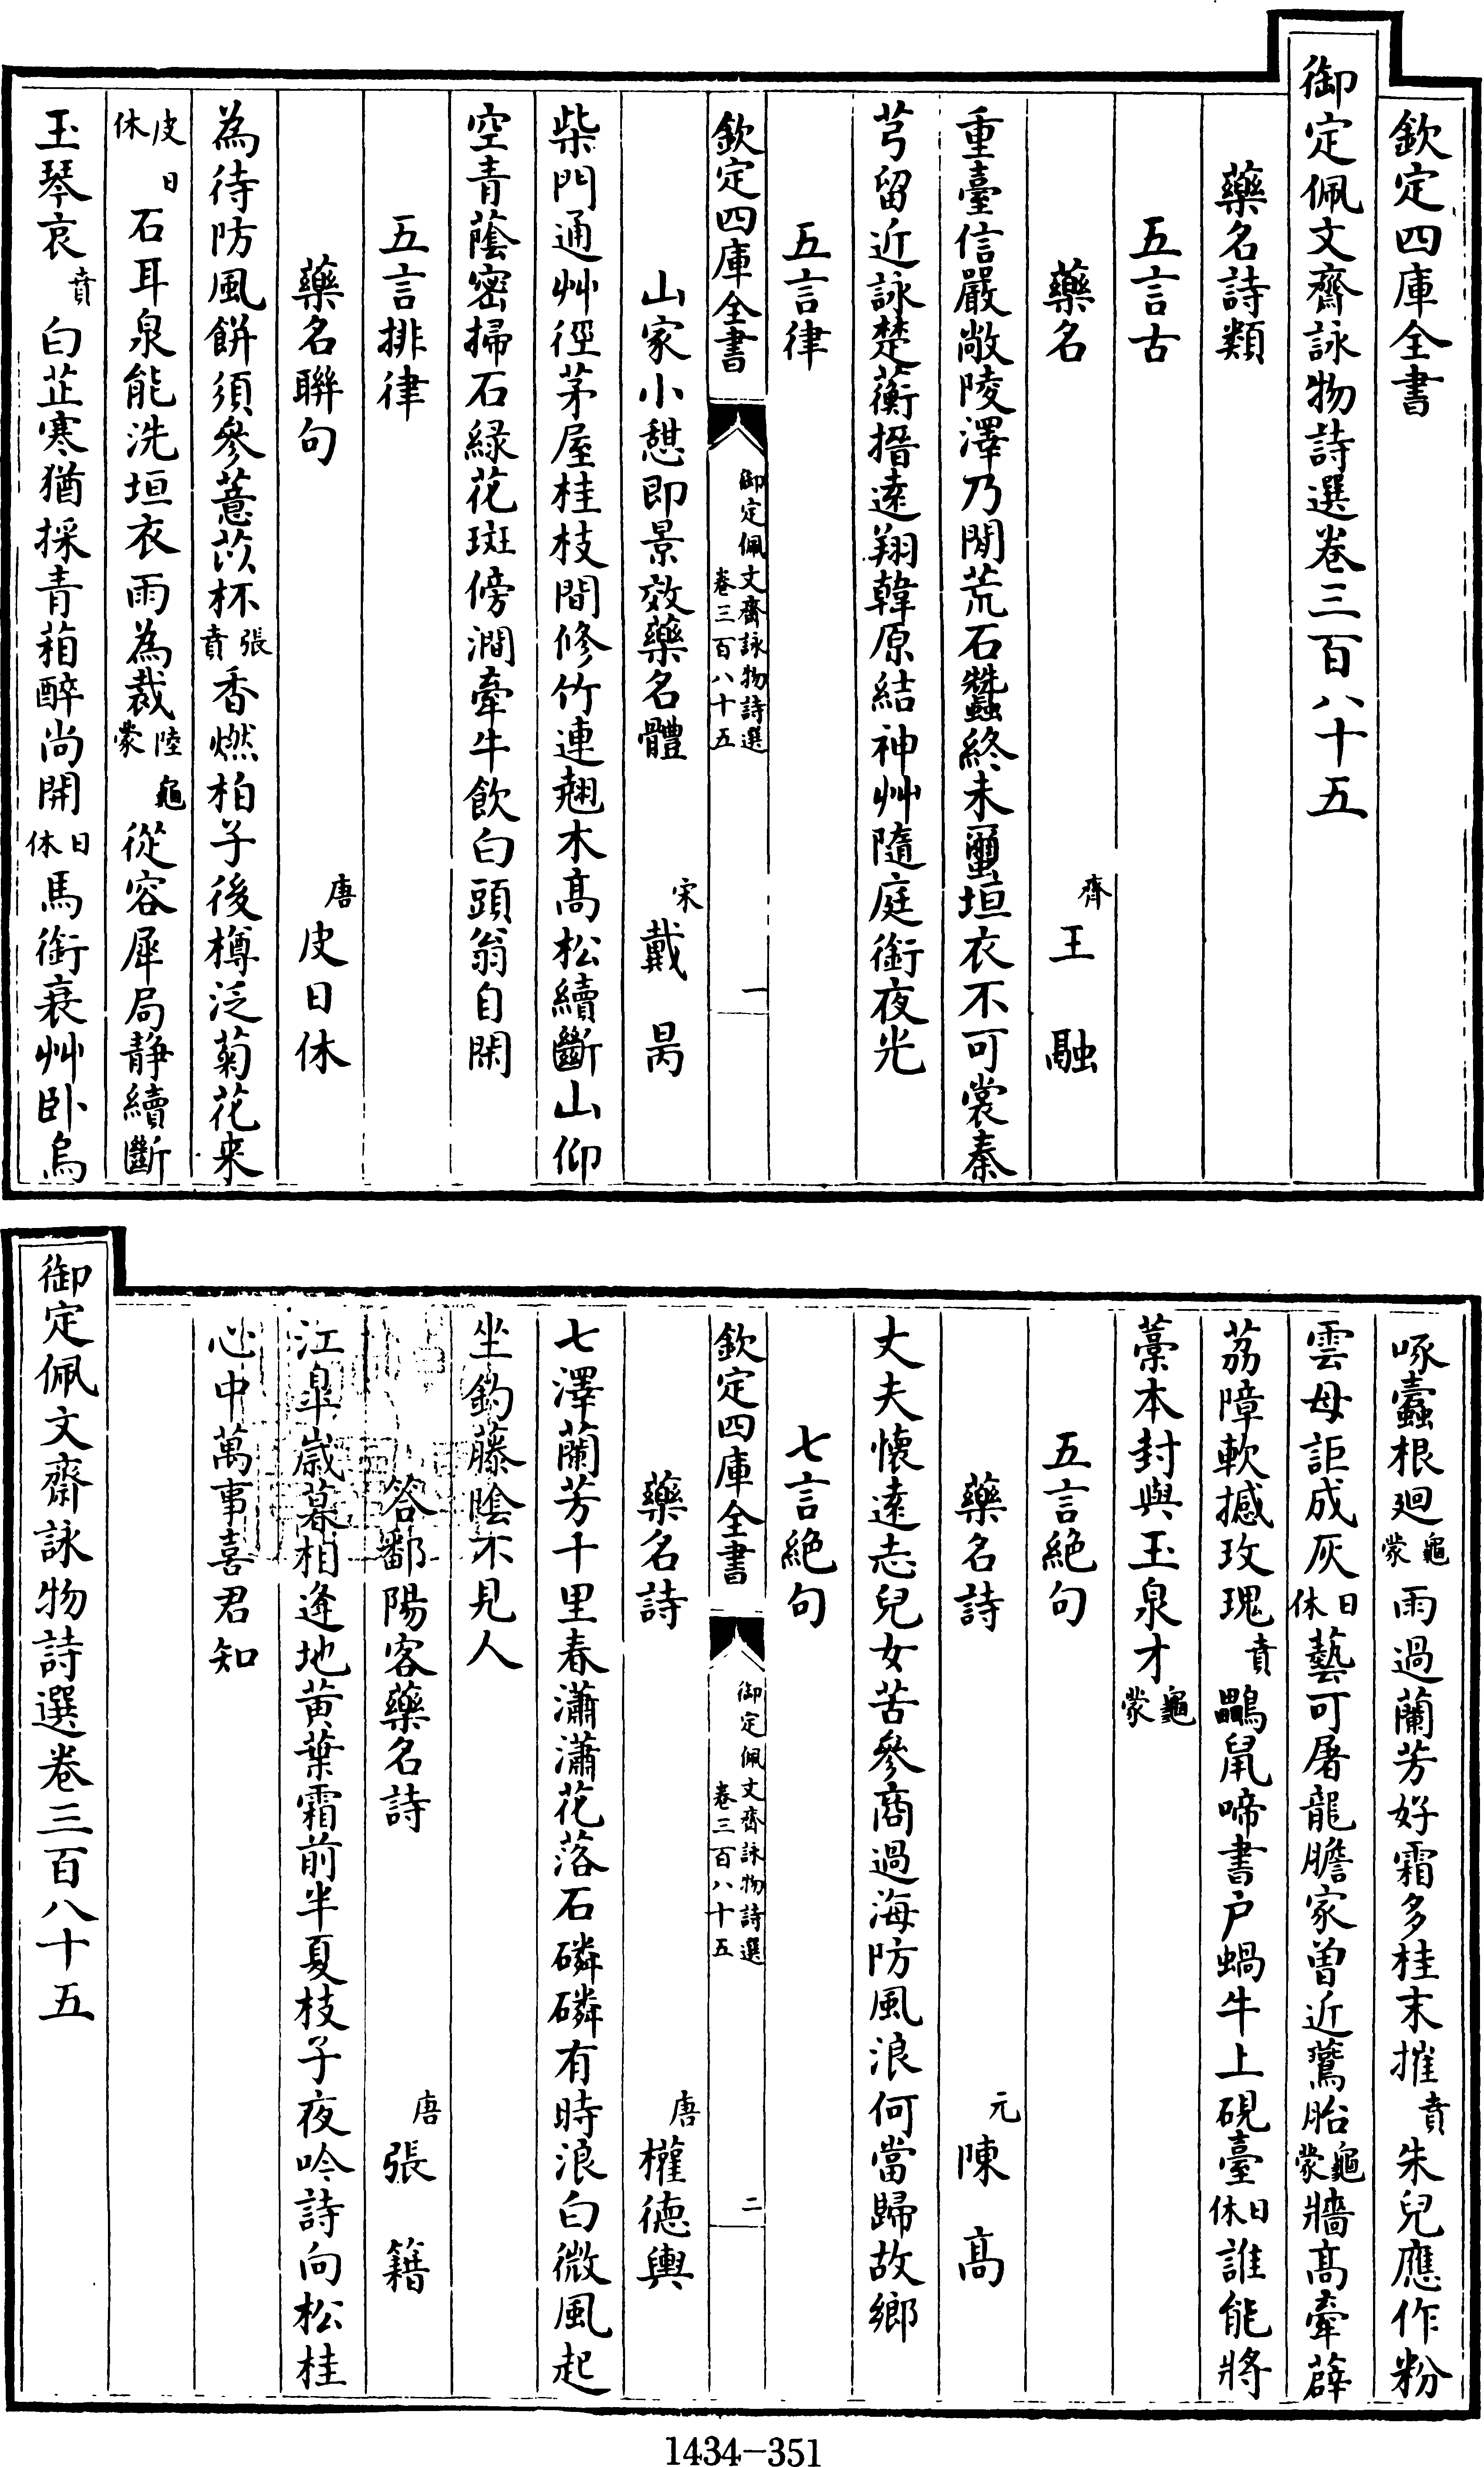 欽定四庫全書
御定佩文齋詠物詩選卷三百八十五
藥名詩類
五言古
藥名　齊王融
重臺信嚴敞陵澤乃閒荒石蠶終未䌳垣衣不可裳秦
芎留近詠楚蘅搢遠翔韓原結神艸隨庭銜夜光
五言律
欽定四庫全書　御定佩文齋詠物詩選卷三百八十五　一
山家小憩即景效藥名體　宋戴昺
柴門通艸徑茅屋桂枝間修竹連翹木高松續斷山仰
空青蔭密掃石綠花斑傍澗牽牛飲白頭翁自閑
五言排律
藥名聯句　唐皮日休
為待防風餅須參薏苡杯張賁香燃柏子後樽泛菊花来
皮日休石耳泉能洗垣衣雨為裁陸龜蒙從容犀局静續斷
玉琴哀賁白芷寒猶採青葙醉尚開日休馬銜衰艸卧烏
啄蠹根廻龜蒙雨過蘭芳好霜多桂末摧賁朱兒應作粉
雲母詎成灰日休藝可屠龍膽家曾近鷰胎龜蒙牆髙牽薜
荔障軟撼玫瑰賁鸓鼠啼書户蝸牛上硯臺日休誰能將
藁本封與玉泉才龜蒙
五言絶句
藥名詩　元陳髙
丈夫懷遠志兒女苦參商過海防風浪何當歸故鄉
七言絶句
欽定四庫全書　御定佩文齋詠物詩選卷三百八十五　二
藥名詩　唐權德輿
七澤蘭芳千里春瀟瀟花落石磷磷有時浪白微風起
坐釣藤陰不見人
答鄱陽客藥名詩　唐張籍
江臯歲暮相逢地黄葉霜前半夏枝子夜吟詩向松桂
心中萬事喜君知
御定佩文齋詠物詩選卷三百八十五
1434-351